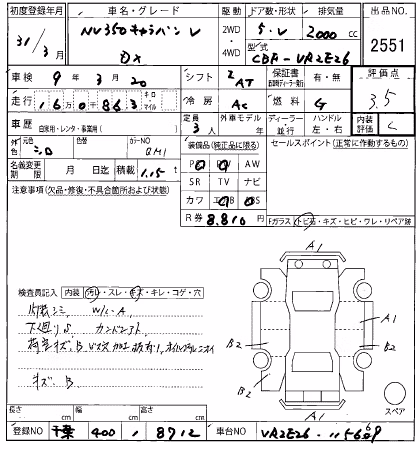 初度登録年月 車名・グレード 駆動 ドア数・形状 排気量 出品NO.
31/3月 NV350キャラバン V DX 2WD ・ 4WD 5・V 2000cc 2551
型式 CBF-VR2E26
車検 9年3月20 シフト AT 保証書 有・無 評価点 3.5
走行 160863 キロ マイル 冷房 AC 燃料 G
車歴 自家用・レンタ・事業用( ) 定員 3人 外車モデル 年 ディーラー・並行 ハンドル 左・右 内装評価 C
外色 元色 シロ 色替 カラーNO QM1 装備品(純正品に限る) セールスポイント(正常に作動するもの)
名義変更期限 月 日迄 積載 1.15t PS PW AW
SR TV ナビ
注意事項(欠品・修復・不具合箇所および状態) カワ エアB ABS
R券 8.810 円 Fガラス(トビ石・キズ・ヒビ・ワレ・リペア跡
検査員記入 内装(汚れ・スレ・キズ・キレ・コゲ・穴
内装シミ W/C-A
キズ、B
A1
A1
B2 B2
B2
A1
スペア
長さ cm 幅 cm 高さ cm
登録NO 千葉 400 い 8712 車台NO VR2E26-115669